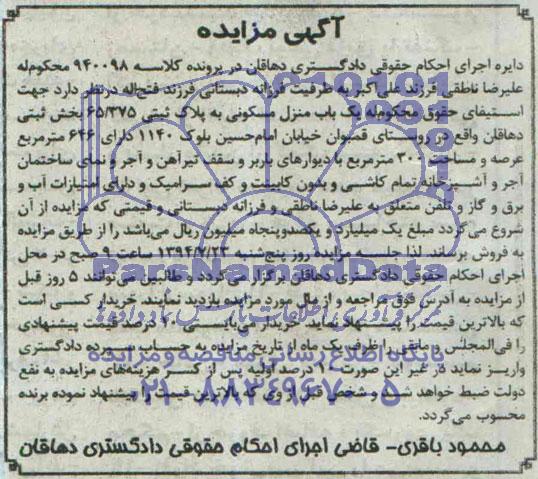 آگهی مزایده
دایره اجرای احکام حقوقی دادگستری دهاقان در پرونده کلاسه ۹۴۰۰۹۸ محکوم‌له
علیرضا ناطقی فرزند علی‌اکبر به طرفیت فرزانه دبستانی فرزند فتح‌اله درنظر دارد جهت
استیفای حقوق محکوم‌له یک باب منزل مسکونی به پلاک ثبتی ۶۵/۳۷۵ بخش ثبتی
دهاقان واقع در روستای قمبوان خیابان امام‌حسین بلوک ۱۱۴۰ دارای ۶۴۶ مترمربع
عرصه و مساحت ۳۰۰ مترمربع با دیوارهای باربر و سقف تیرآهن و آجر و نمای ساختمان
آجر و آشپزخانه تمام کاشی و بدون کابینت و کف سرامیک و دارای امتیازات آب و
برق و گاز و تلفن متعلق به علیرضا ناطقی و فرزانه دبستانی و قیمتی که مزایده از آن
شروع می‌گردد مبلغ یک میلیارد و یکصدوپنجاه میلیون ریال می‌باشد را از طریق مزایده
به فروش برساند. لذا جلسه مزایده روز پنج‌شنبه ۱۳۹۴/۷/۲۳ ساعت ۹ صبح در محل
اجرای احکام حقوقی دادگستری دهاقان برگزار می‌گردد و طالبین می‌توانند ۵ روز قبل
از مزایده به آدرس فوق مراجعه و از مال مورد مزایده بازدید نمایند. خریدار کسی است
که بالاترین قیمت را پیشنهاد نماید. خریدار می‌بایستی ۱۰ درصد قیمت پیشنهادی
را فی‌المجلس و مابقی را ظرف یک ماه از تاریخ مزایده به حساب سپرده دادگستری
واریز نماید در غیر این صورت ۱۰ درصد اولیه پس از کسر هزینه‌های مزایده به نفع
دولت ضبط خواهد شد و شخص قبل از وی که بالاترین قیمت را پیشنهاد نموده برنده
محسوب می‌گردد.
محمود باقری- قاضی اجرای احکام حقوقی دادگستری دهاقان
ParsNamadData
مرکز فرآوری اطلاعات پارس نماد داده‌ها
پایگاه اطلاع رسانی مناقصه و مزایده
۰۲۱-۸۸۳۴۹۶۷۰-۵